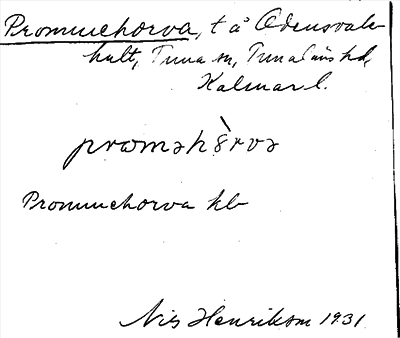 Prommehorva, t å Ödensvala-
hult, Tuna sn, Tunaläns hd,
Kalmar l.
proməhòrvə
Prommehorva kb
Nils Henrikson 1931